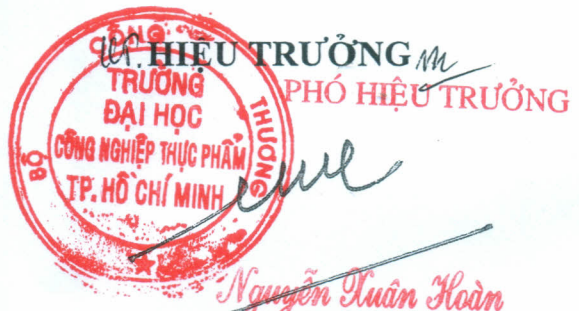 KT. HIỆU TRƯỞNG
PHÓ HIỆU TRƯỞNG
BỘ CÔNG THƯƠNG
TRƯỜNG
ĐẠI HỌC
CÔNG NGHIỆP THỰC PHẨM
TP. HỒ CHÍ MINH
Nguyễn Xuân Hoàn